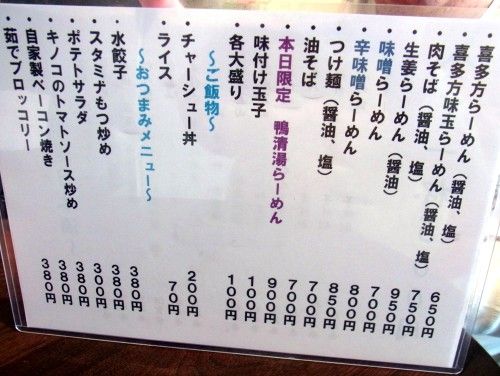 ・喜多方らーめん（醤油、塩） 650円
・喜多方味玉らーめん（醤油、塩） 750円
・肉そば（醤油、塩） 950円
・生姜らーめん（醤油） 700円
・味噌らーめん 800円
・辛味噌らーめん 850円
・つけ麺（醤油、塩） 700円
・油そば 700円
・本日限定 鴨清湯らーめん 900円
・味付け玉子 100円
・各大盛り 100円
～ご飯物～
・チャーシュー丼 200円
・ライス 70円
～おつまみメニュー～
・水餃子 380円
・スタミナもつ炒め 380円
・ポテトサラダ 300円
・キノコのトマトソース炒め 380円
・自家製ベーコン焼き 380円
・茹でブロッコリー 380円